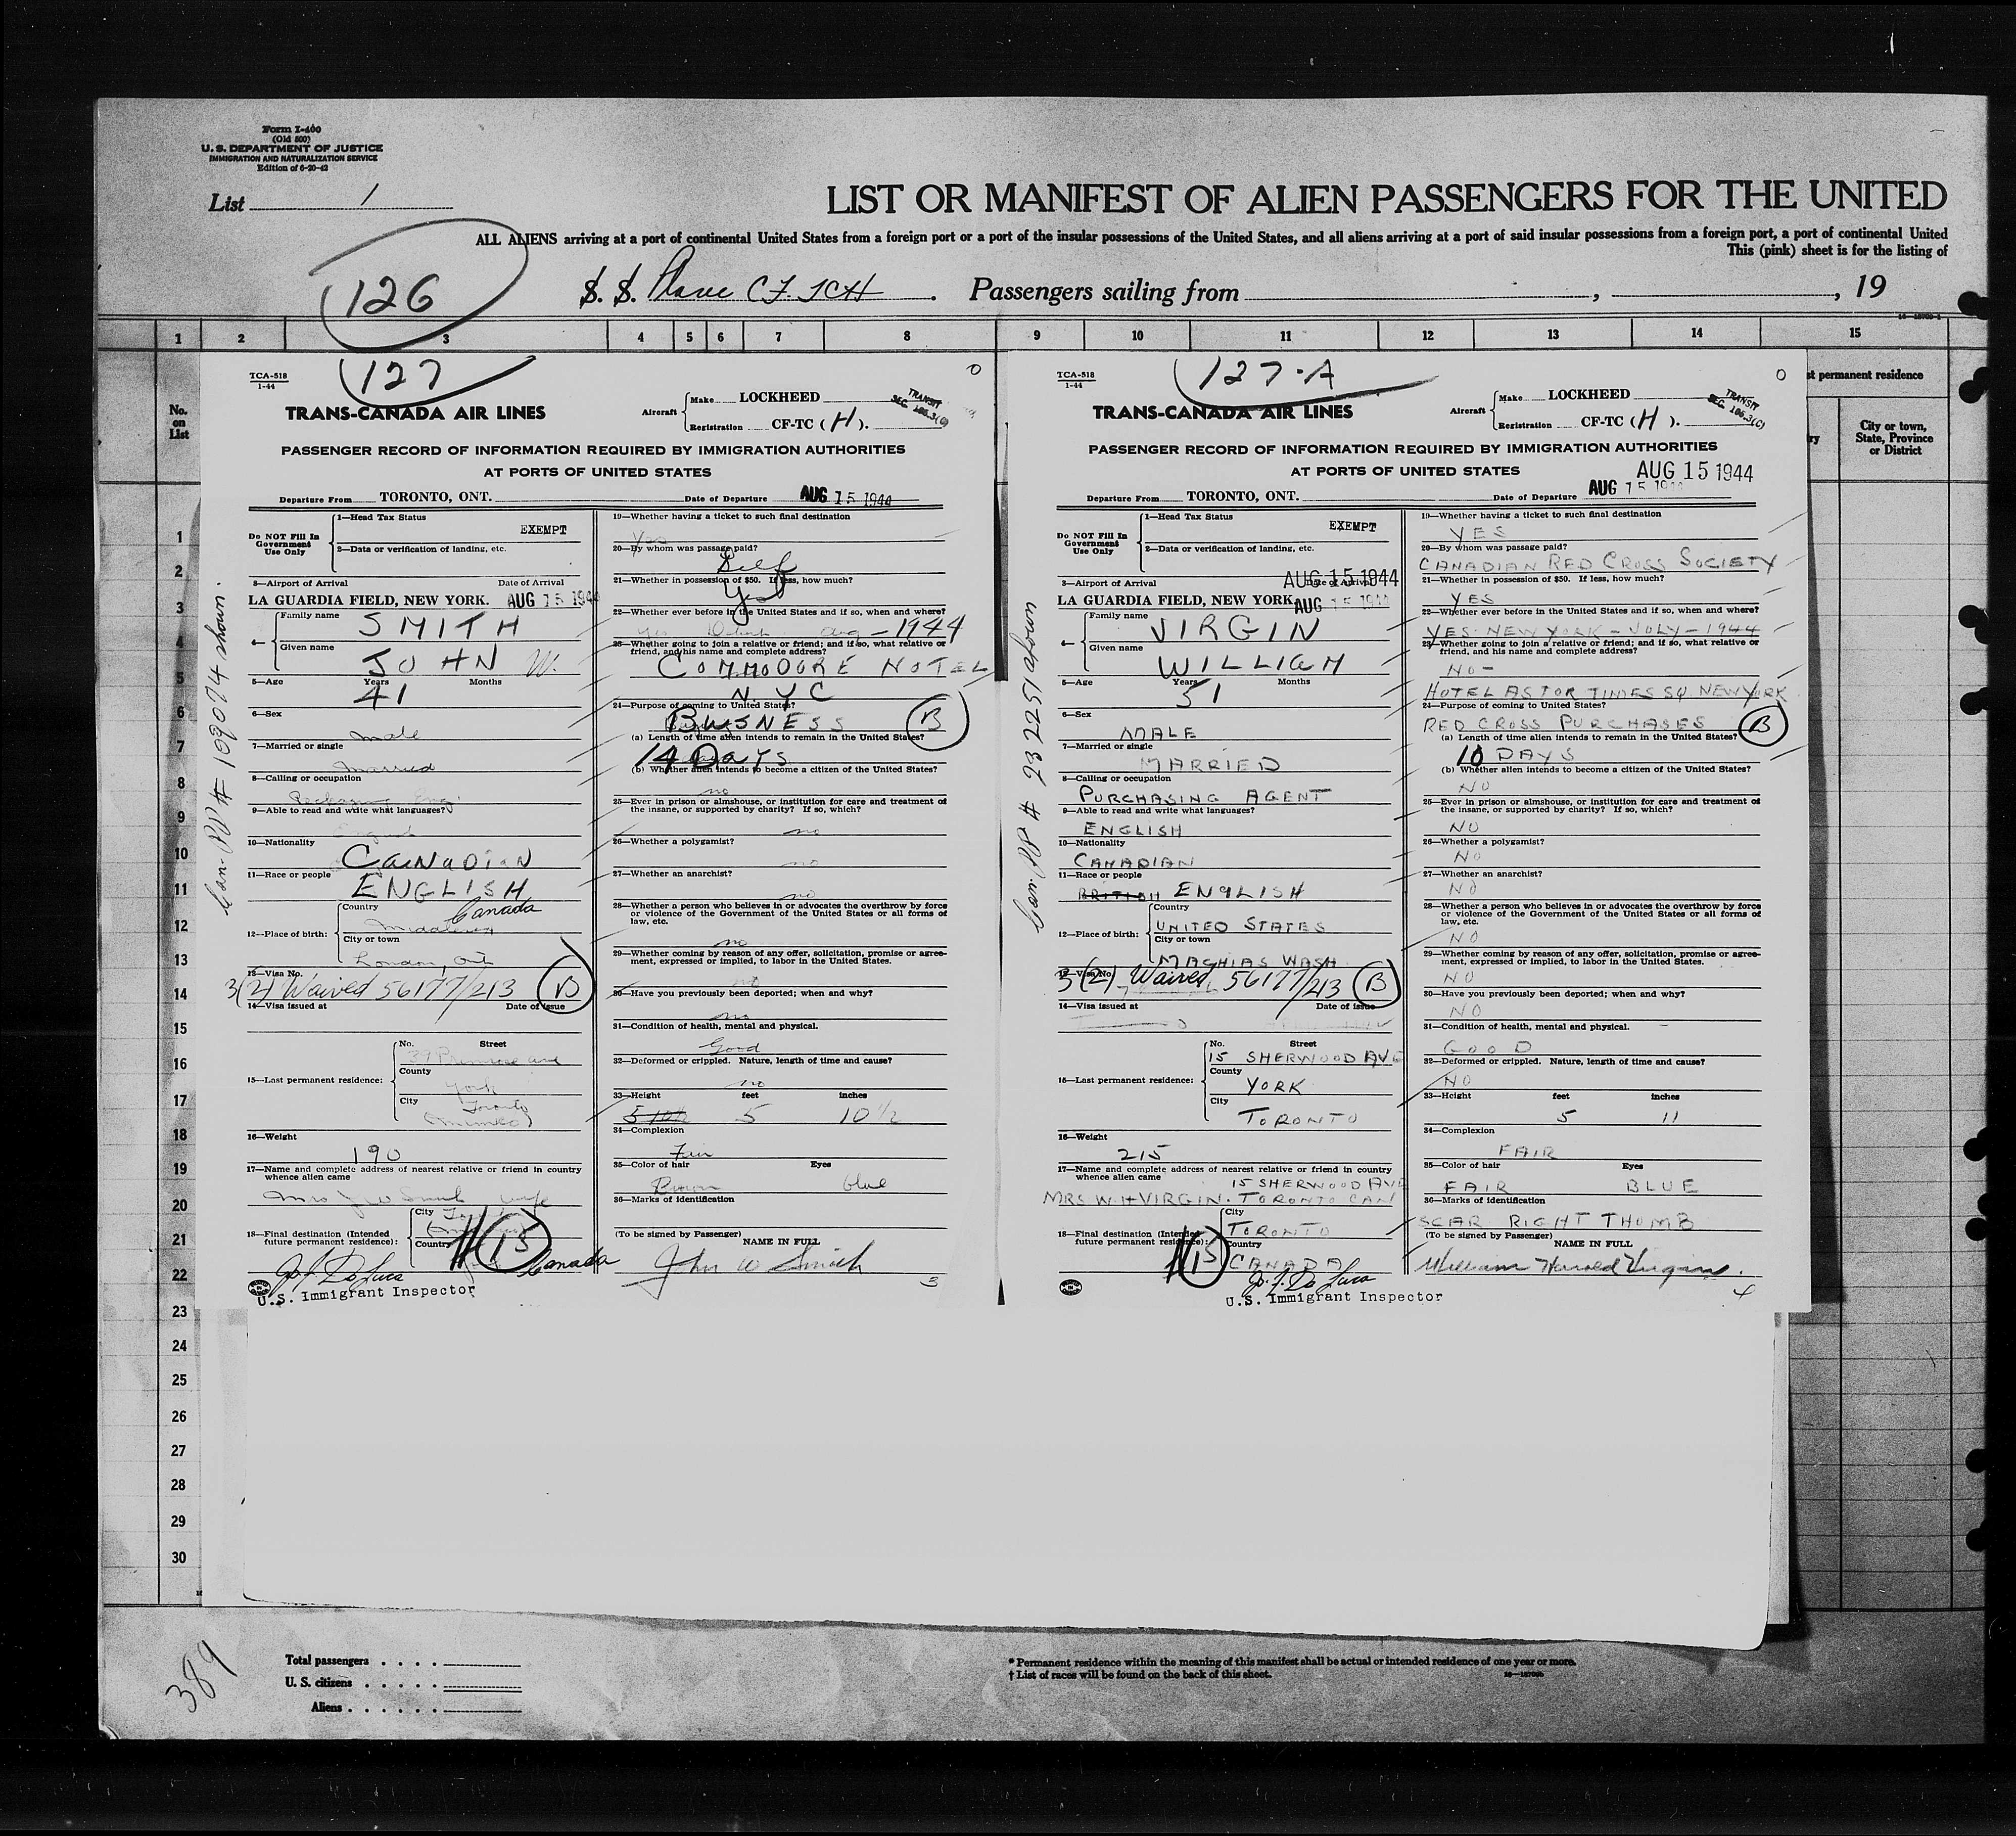 Form I-400
(Old 500)
U. S. DEPARTMENT OF JUSTICE
IMMIGRATION AND NATURALIZATION SERVICE
Edition of 6-20-42
List 1
LIST OR MANIFEST OF ALIEN PASSENGERS FOR THE UNITED
ALL ALIENS arriving at a port of continental United States from a foreign port or a port of the insular possessions of the United States, and all aliens arriving at a port of said insular possessions from a foreign port, a port of continental United
This (pink) sheet is for the listing of
126
S. S. Plane CF. TCH. Passengers sailing from , , 19
1 2 3 4 5 6 7 8 9 10 11 12 13 14 15
No.
on
List
st permanent residence
City or town,
State, Province
or District
1
2
3
4
5
6
7
8
9
10
11
12
13
14
15
16
17
18
19
20
21
22
23
24
25
26
27
28
29
30
Can. PP # 109074 shown.
TCA-518
1-44
127
0
TRANS-CANADA AIR LINES
Aircraft
Make LOCKHEED
Registration CF-TC ( H ).
TRANSIT
SEC. 106.3(c)
PASSENGER RECORD OF INFORMATION REQUIRED BY IMMIGRATION AUTHORITIES
AT PORTS OF UNITED STATES
Departure From TORONTO, ONT. Date of Departure AUG 15 1944
Do NOT Fill In
Government
Use Only
1—Head Tax Status
EXEMPT
2—Data or verification of landing, etc.
3—Airport of Arrival Date of Arrival
LA GUARDIA FIELD, NEW YORK. AUG 15 194
4—
Family name
SMITH
Given name
JOHN W.
5—Age Years Months
41
6—Sex
male
7—Married or single
Married
8—Calling or occupation
Eng.
9—Able to read and write what languages?
10—Nationality
CANADIAN
11—Race or people
ENGLISH
12—Place of birth:
Country
Canada
Middlesex
City or town
London, Ont
13—Visa No.
3(2) Waived 56177/213 B
14—Visa issued at Date of Issue
15—Last permanent residence:
No. Street
37 Primrose ave
County
York
City
Toronto
(Mimico)
16—Weight
190
17—Name and complete address of nearest relative or friend in country
whence alien came
Mrs J W Smith wife
18—Final destination (Intended
future permanent residence):
City
Country
15
Canada
U.S. Immigrant Inspector
19—Whether having a ticket to such final destination
Yes
20—By whom was passage paid?
Self
21—Whether in possession of $50. If less, how much?
Yes
22—Whether ever before in the United States and if so, when and where?
Yes Aug - 1944
23—Whether going to join a relative or friend; and if so, what relative or
friend, and his name and complete address?
COMMODORE HOTEL
N.Y.C
24—Purpose of coming to United States?
BUSNESS B
(a) Length of time alien intends to remain in the United States?
14 DAYS
(b) Whether alien intends to become a citizen of the United States?
no
25—Ever in prison or almshouse, or institution for care and treatment of
the insane, or supported by charity? If so, which?
no
26—Whether a polygamist?
no
27—Whether an anarchist?
no
28—Whether a person who believes in or advocates the overthrow by force
or violence of the Government of the United States or all forms of
law, etc.
no
29—Whether coming by reason of any offer, solicitation, promise or agree-
ment, expressed or implied, to labor in the United States.
no
30—Have you previously been deported; when and why?
no
31—Condition of health, mental and physical.
Good
32—Deformed or crippled. Nature, length of time and cause?
no
33—Height feet inches
5 10½ 5 10 ½
34—Complexion
Fair
35—Color of hair Eyes
Brown blue
36—Marks of identification
(To be signed by Passenger)
NAME IN FULL
John W Smith
3
Can. PP # 2322519 shown
TCA-518
1-44
127-A
0
TRANS-CANADA AIR LINES
Aircraft
Make LOCKHEED
Registration CF-TC ( H ).
TRANSIT
SEC. 106.3(c)
PASSENGER RECORD OF INFORMATION REQUIRED BY IMMIGRATION AUTHORITIES
AT PORTS OF UNITED STATES
AUG 15 1944
Departure From TORONTO, ONT. Date of Departure AUG 15 1944
Do NOT Fill In
Government
Use Only
1—Head Tax Status
EXEMPT
2—Data or verification of landing, etc.
3—Airport of Arrival Date of Arrival
AUG 15 1944
LA GUARDIA FIELD, NEW YORK. AUG 15 1944
4—
Family name
VIRGIN
Given name
WILLIAM
5—Age Years Months
51
6—Sex
MALE
7—Married or single
MARRIED
8—Calling or occupation
PURCHASING AGENT
9—Able to read and write what languages?
ENGLISH
10—Nationality
CANADIAN
11—Race or people
BRITISH ENGLISH
12—Place of birth:
Country
UNITED STATES
City or town
MACHIAS WASH
13—Visa No.
3(2) Waived 56177/213 B
14—Visa issued at Date of Issue
15—Last permanent residence:
No. Street
15 SHERWOOD AVE
County
YORK
City
TORONTO
16—Weight
215
17—Name and complete address of nearest relative or friend in country
whence alien came
15 SHERWOOD AVE
MRS W. H VIRGIN. TORONTO CAN
18—Final destination (Intended
future permanent residence):
City
TORONTO
Country
15
CANADA
U.S. Immigrant Inspector
19—Whether having a ticket to such final destination
YES
20—By whom was passage paid?
CANADIAN RED CROSS SOCIETY
21—Whether in possession of $50. If less, how much?
YES
22—Whether ever before in the United States and if so, when and where?
YES. NEW YORK - JULY - 1944
23—Whether going to join a relative or friend; and if so, what relative or
friend, and his name and complete address?
NO -
HOTEL ASTOR TIMES SQ NEW YORK
24—Purpose of coming to United States?
RED CROSS PURCHASES B
(a) Length of time alien intends to remain in the United States?
10 DAYS
(b) Whether alien intends to become a citizen of the United States?
NO
25—Ever in prison or almshouse, or institution for care and treatment of
the insane, or supported by charity? If so, which?
NO
26—Whether a polygamist?
NO
27—Whether an anarchist?
NO
28—Whether a person who believes in or advocates the overthrow by force
or violence of the Government of the United States or all forms of
law, etc.
NO
29—Whether coming by reason of any offer, solicitation, promise or agree-
ment, expressed or implied, to labor in the United States.
NO
30—Have you previously been deported; when and why?
NO
31—Condition of health, mental and physical.
GOOD
32—Deformed or crippled. Nature, length of time and cause?
NO
33—Height feet inches
5 11
34—Complexion
FAIR
35—Color of hair Eyes
FAIR BLUE
36—Marks of identification
SCAR RIGHT THUMB
(To be signed by Passenger)
NAME IN FULL
William Harold Virgin.
4
389
Total passengers
U. S. citizens
Aliens
* Permanent residence within the meaning of this manifest shall be actual or intended residence of one year or more.
† List of races will be found on the back of this sheet.